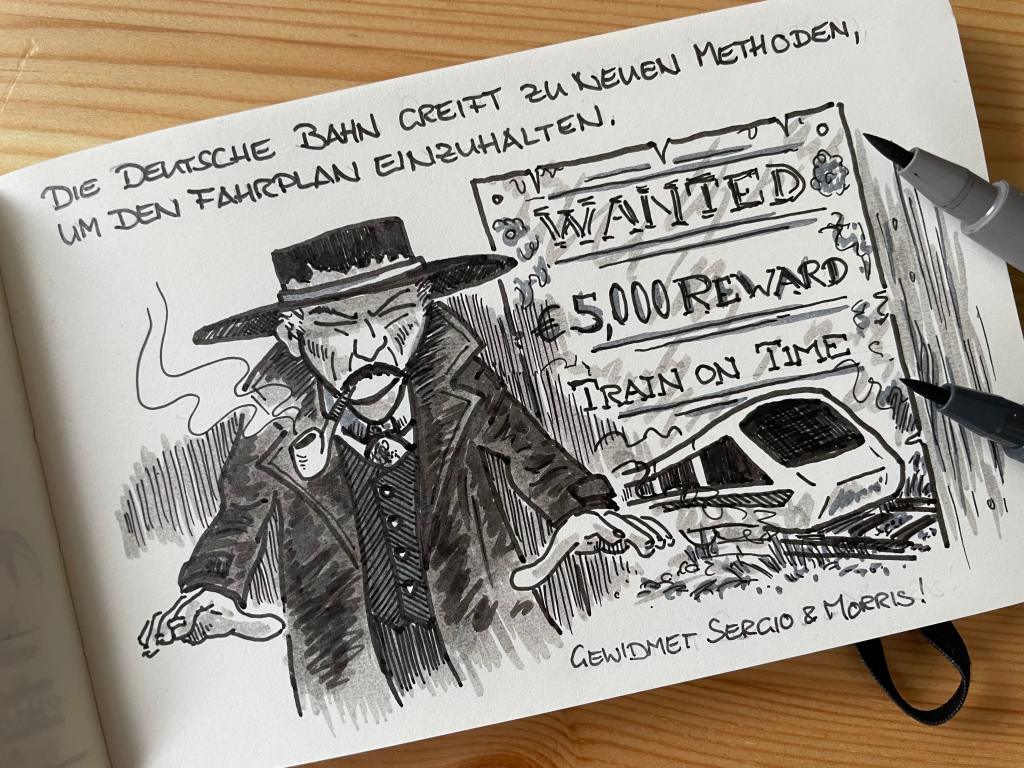 DIE DEUTSCHE BAHN GREIFT ZU NEUEN METHODEN,
UM DEN FAHRPLAN EINZUHALTEN.
WANTED
€ 5,000 REWARD
TRAIN ON TIME
GEWIDMET SERGIO & MORRIS!